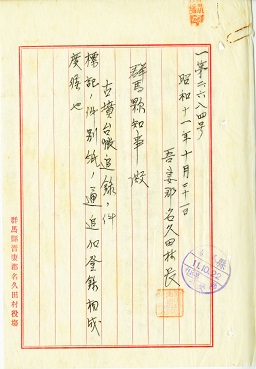 一第二六八四号
昭和十一年十月二十一日
吾妻郡名久田村長
群馬縣知事 殿
古墳台帳追録ノ件
標記ノ件別紙ノ通追加登録相成
度候也
群馬縣吾妻郡名久田村役場
11.10.22